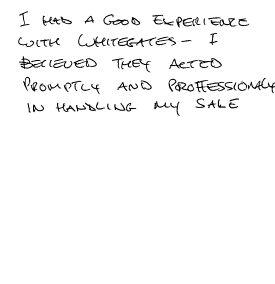 I HAD A GOOD EXPERIENCE
WITH WHITEGATES - I
BELIEVED THEY ACTED
PROMPTLY AND PROFFESSIONALY
IN HANDLING MY SALE